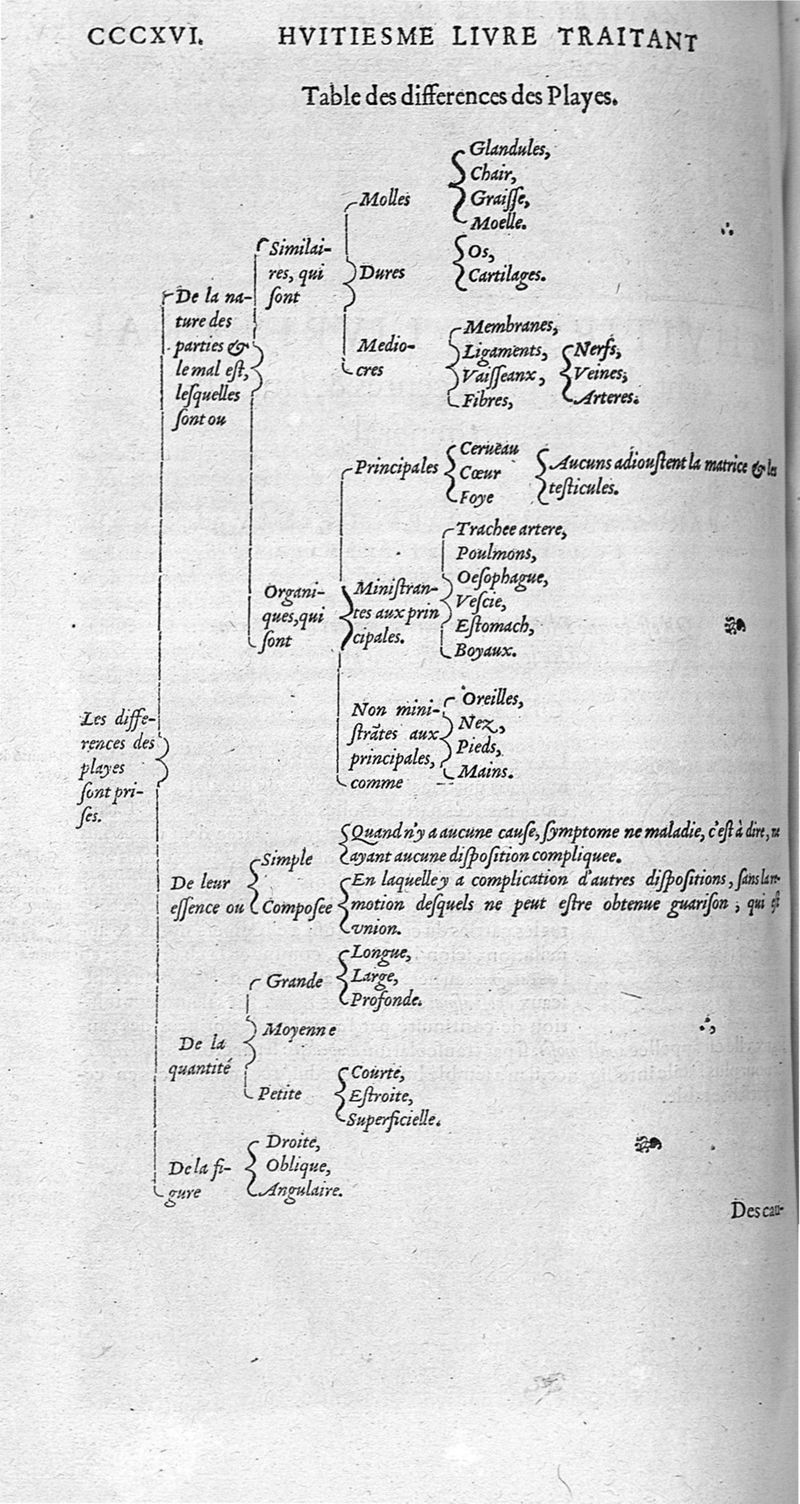 CCCXVI. HVITIESME LIVRE TRAITANT
Table des differences des Playes.
Les diffe-
rences des
playes
ſont pri-
ſes.
De la na-
ture des
parties &
le mal eſt,
leſquelles
ſont ou
Similai-
res, qui
ſont
Molles
Glandules,
Chair,
Graiſſe,
Moelle.
Dures
Os,
Cartilages.
Medio-
cres
Membranes,
Ligaments,
Vaiſſeaux,
Fibres,
Nerfs,
Veines,
Arteres.
Organi-
ques, qui
ſont
Principales
Cerueau
Cœur
Foye
Aucuns adiouſtent la matrice & les
teſticules.
Miniſtran-
tes aux prin
cipales.
Trachee artere,
Poulmons,
Oeſophague,
Veſcie,
Eſtomach,
Boyaux.
Non mini-
ſtrãtes aux
principales,
comme
Oreilles,
Nez,
Pieds,
Mains.
De leur
eſſence ou
Simple
Quand n'y a aucune cauſe, ſymptome ne maladie, c'eſt à dire,
ayant aucune diſpoſition compliquee.
Compoſee
En laquelle y a complication d'autres diſpoſitions, ſans
motion deſquels ne peut eſtre obtenue guariſon, qui eſt
vnion.
De la
quantité
Grande
Longue,
Large,
Profonde.
Moyenne
Petite
Courte,
Eſtroite,
Superficielle.
De la fi-
gure
Droite,
Oblique,
Angulaire.
Des cau-